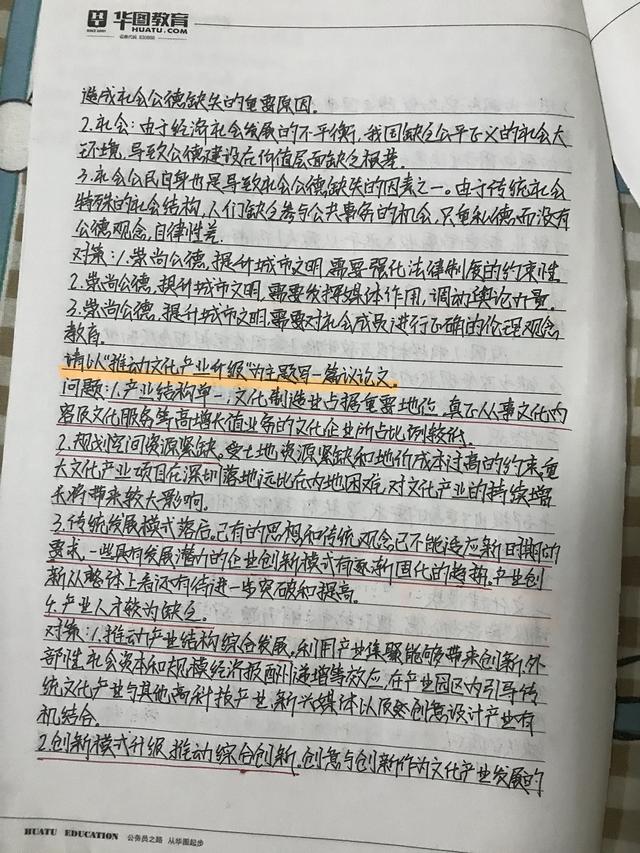 华图教育
HUATU.COM
造成社会公德缺失的重要原因。
2.社会:由于经济社会发展的不平衡,我国缺乏公平正义的社会大
环境,导致公德建设在价值层面缺乏根基。
3.社会公民自身也是导致社会公德缺失的因素之一。由于传统社会
特殊的社会结构,人们缺乏参与公共事务的机会,只重私德而没有
公德观念,自律性差.
对策:1.崇尚公德,提升城市文明,需要强化法律制度的约束性
2.崇尚公德,提升城市文明,需要发挥媒体作用,调动舆论力量.
3.崇尚公德,提升城市文明,需要对社会成员进行正确的伦理观念
教育.
请以“推动文化产业升级”为主题写一篇议论文。
问题:1.产业结构单一,文化制造业占据重要地位,真正从事文化内
容及文化服务等高增长值业务的文化企业所占比例较低.
2.规划空间资源紧缺。受土地资源紧缺和地价成本过高的约束,重
大文化产业项目在深圳落地远比在内地困难,对文化产业的持续增
长将带来较大影响。
3.传统发展模式落后。已有的思想和传统观念已不能适应新时期的
要求,一些具有发展潜力的企业创新模式有逐渐固化的趋势,产业创
新从整体上看还有待进一步突破和提高。
4.产业人才较为缺乏。
对策:1.推动产业结构综合发展。利用产业集聚能够带来创新、外
部性、社会资本和规模经济报酬递增等效应,在产业园区内引导传
统文化产业与其他高科技产业、新兴媒体以及创意设计产业有
机结合。
2.创新模式升级,推动综合创新。创意与创新作为文化产业发展的
HUATU EDUCATION 公务员之路 从华图起步